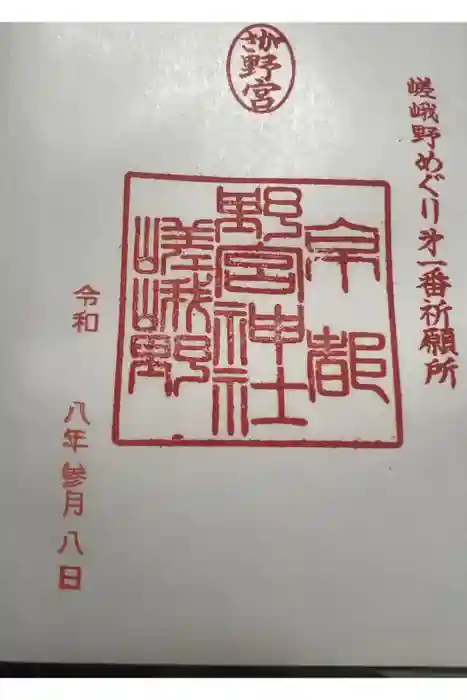 さが
野宮
嵯峨野めぐり第一番祈願所
京都
野宮神社
嵯峨野
令和
八年参月八日